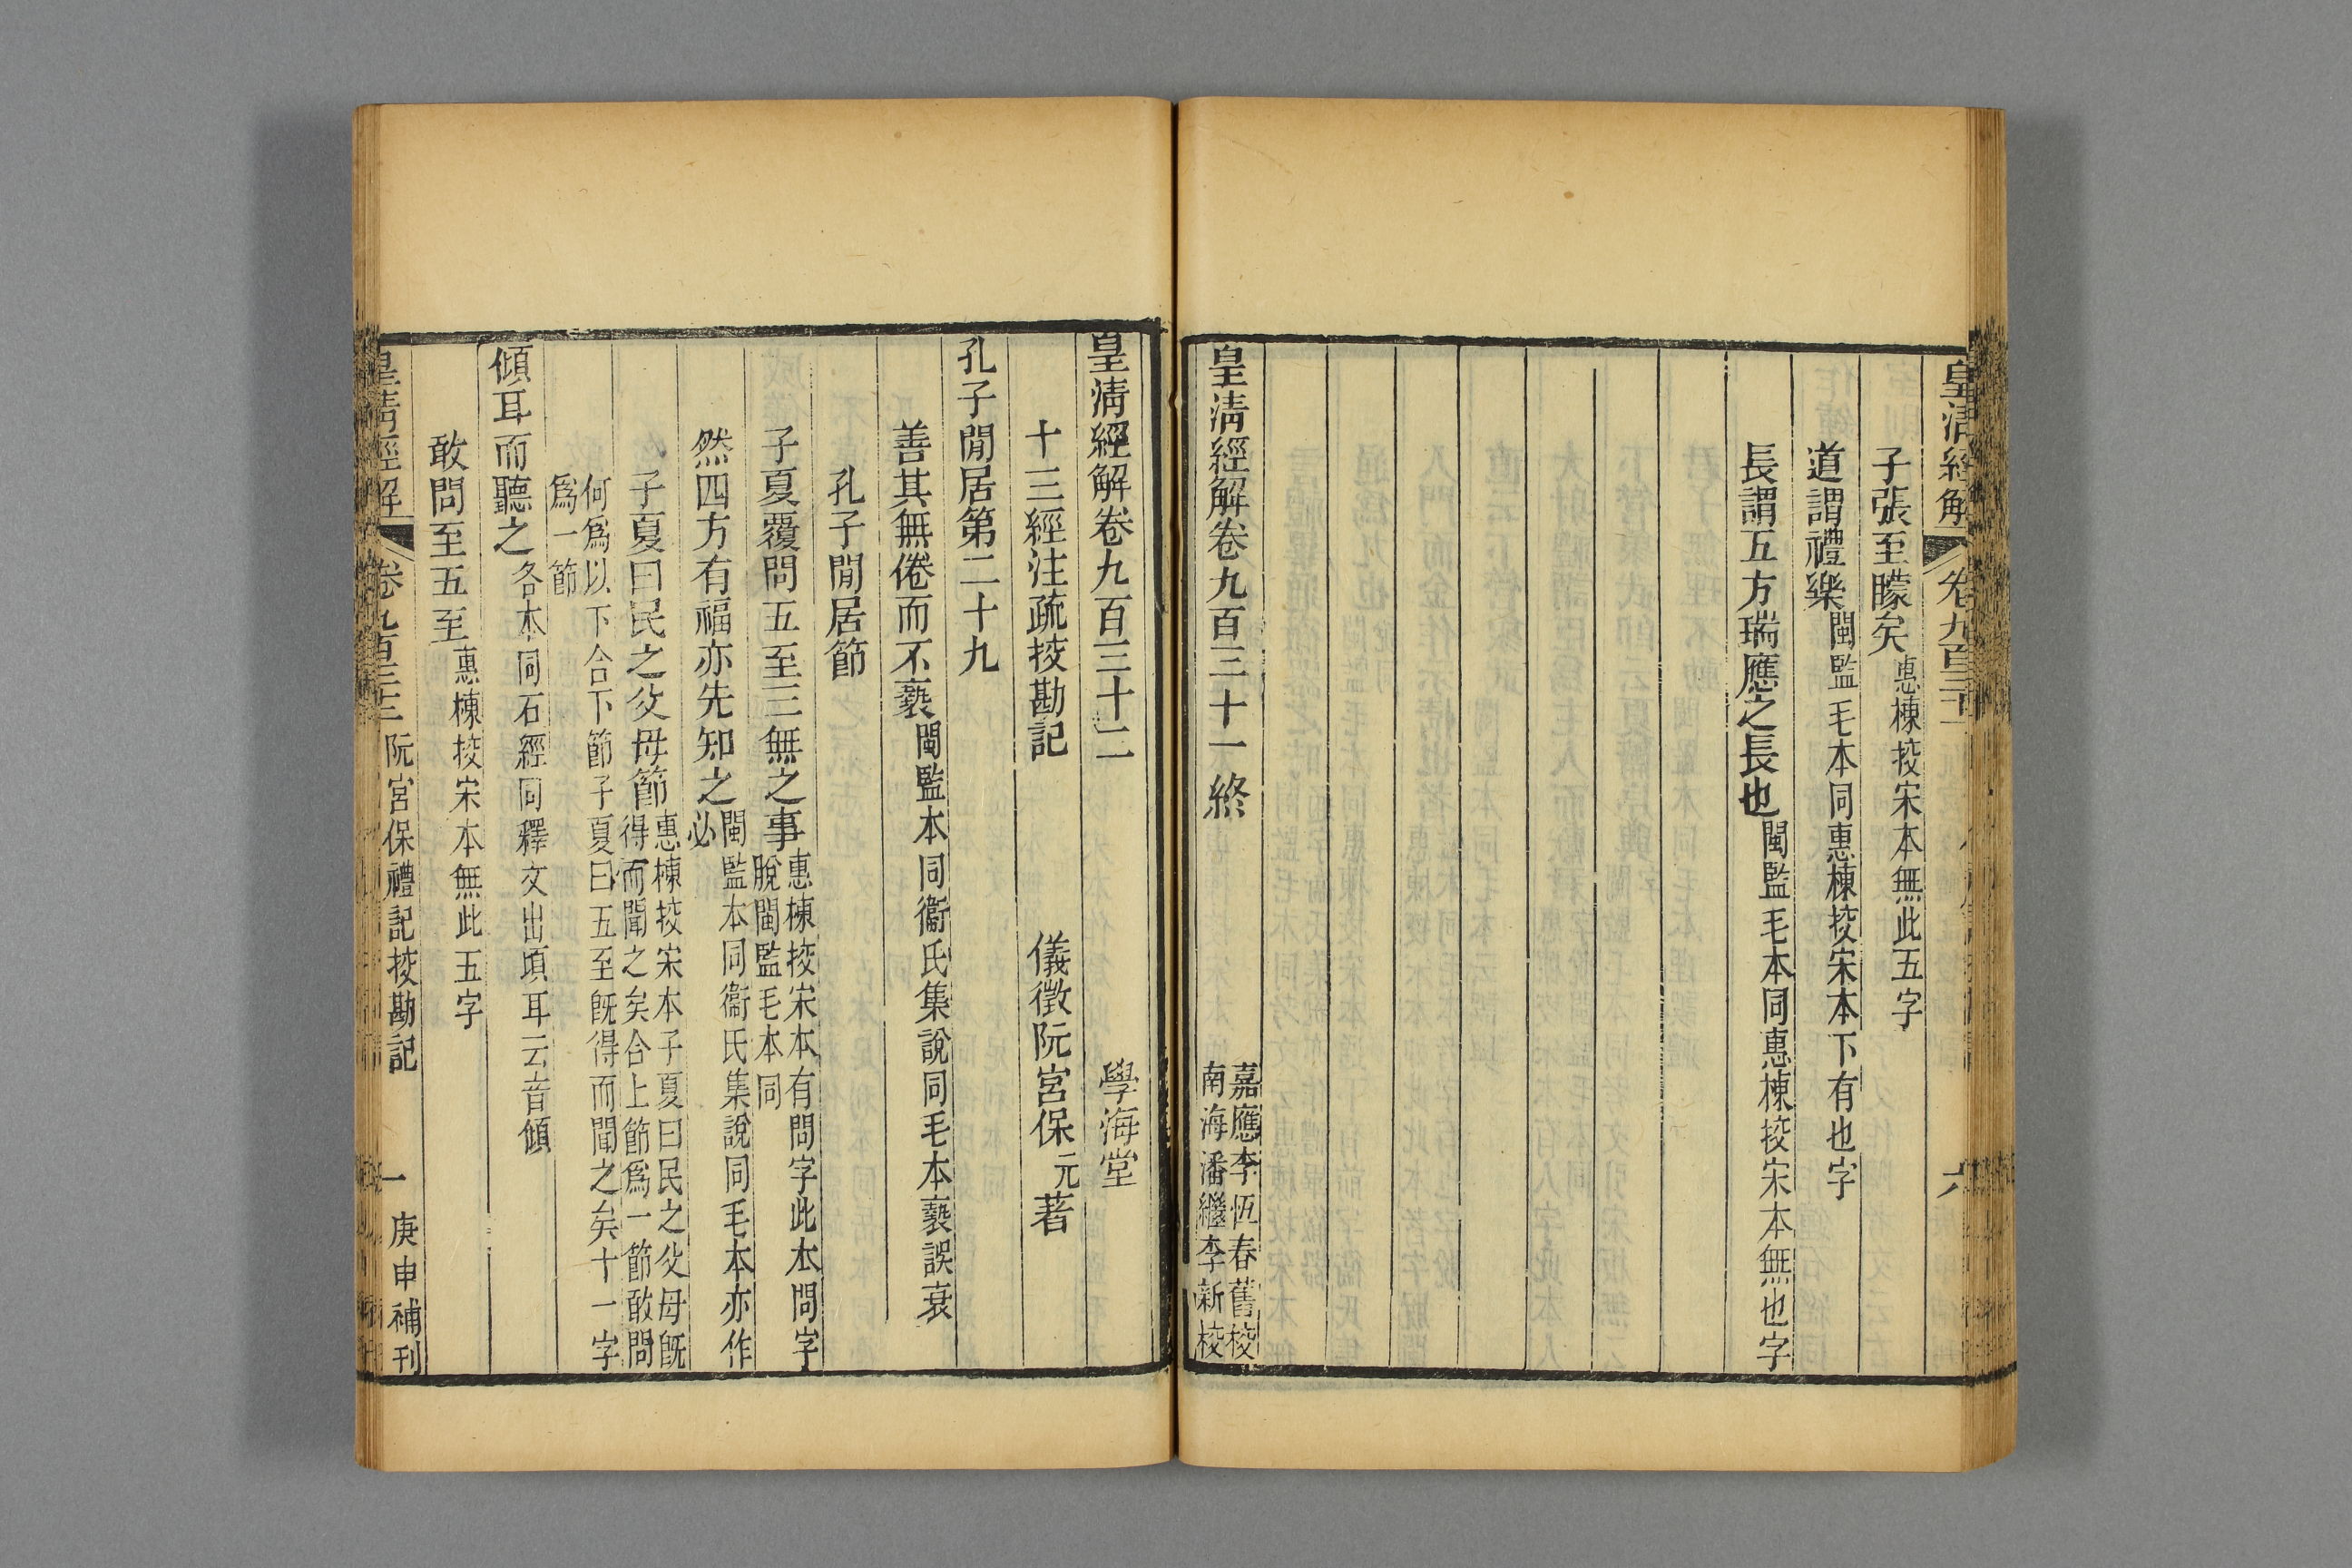 皇清經解
子張至矇矣惠棟挍宋本無此五字
道謂禮樂閩監毛本同惠棟挍宋本下有也字
長謂五方瑞應之長也閩監毛本同惠棟挍宋本無也字
皇清經解卷九百三十一終
嘉應李恆春舊校
南海潘繼李新校
皇清經解卷九百三十二
學海堂
十三經注疏挍勘記
儀徵阮宮保元著
孔子閒居第二十九
善其無倦而不褻閩監本同衞氏集說同毛本褻誤衰
孔子閒居節
子夏覆問五至三無之事惠棟挍宋本有問字此本問字
脫閩監毛本同
然四方有福亦先知之閩監本同衞氏集說同毛本亦作
必
子夏曰民之父母節惠棟挍宋本子夏曰民之父母旣
得而聞之矣合上節爲一節敢問
何爲以下合下節子夏曰五至旣得而聞之矣十一字
爲一節
傾耳而聽之各本同石經同釋文出頃耳云音傾
敢問至五至惠棟挍宋本無此五字
皇清經解
卷九百三十二
阮宮保禮記挍勘記
一
庚申補刊